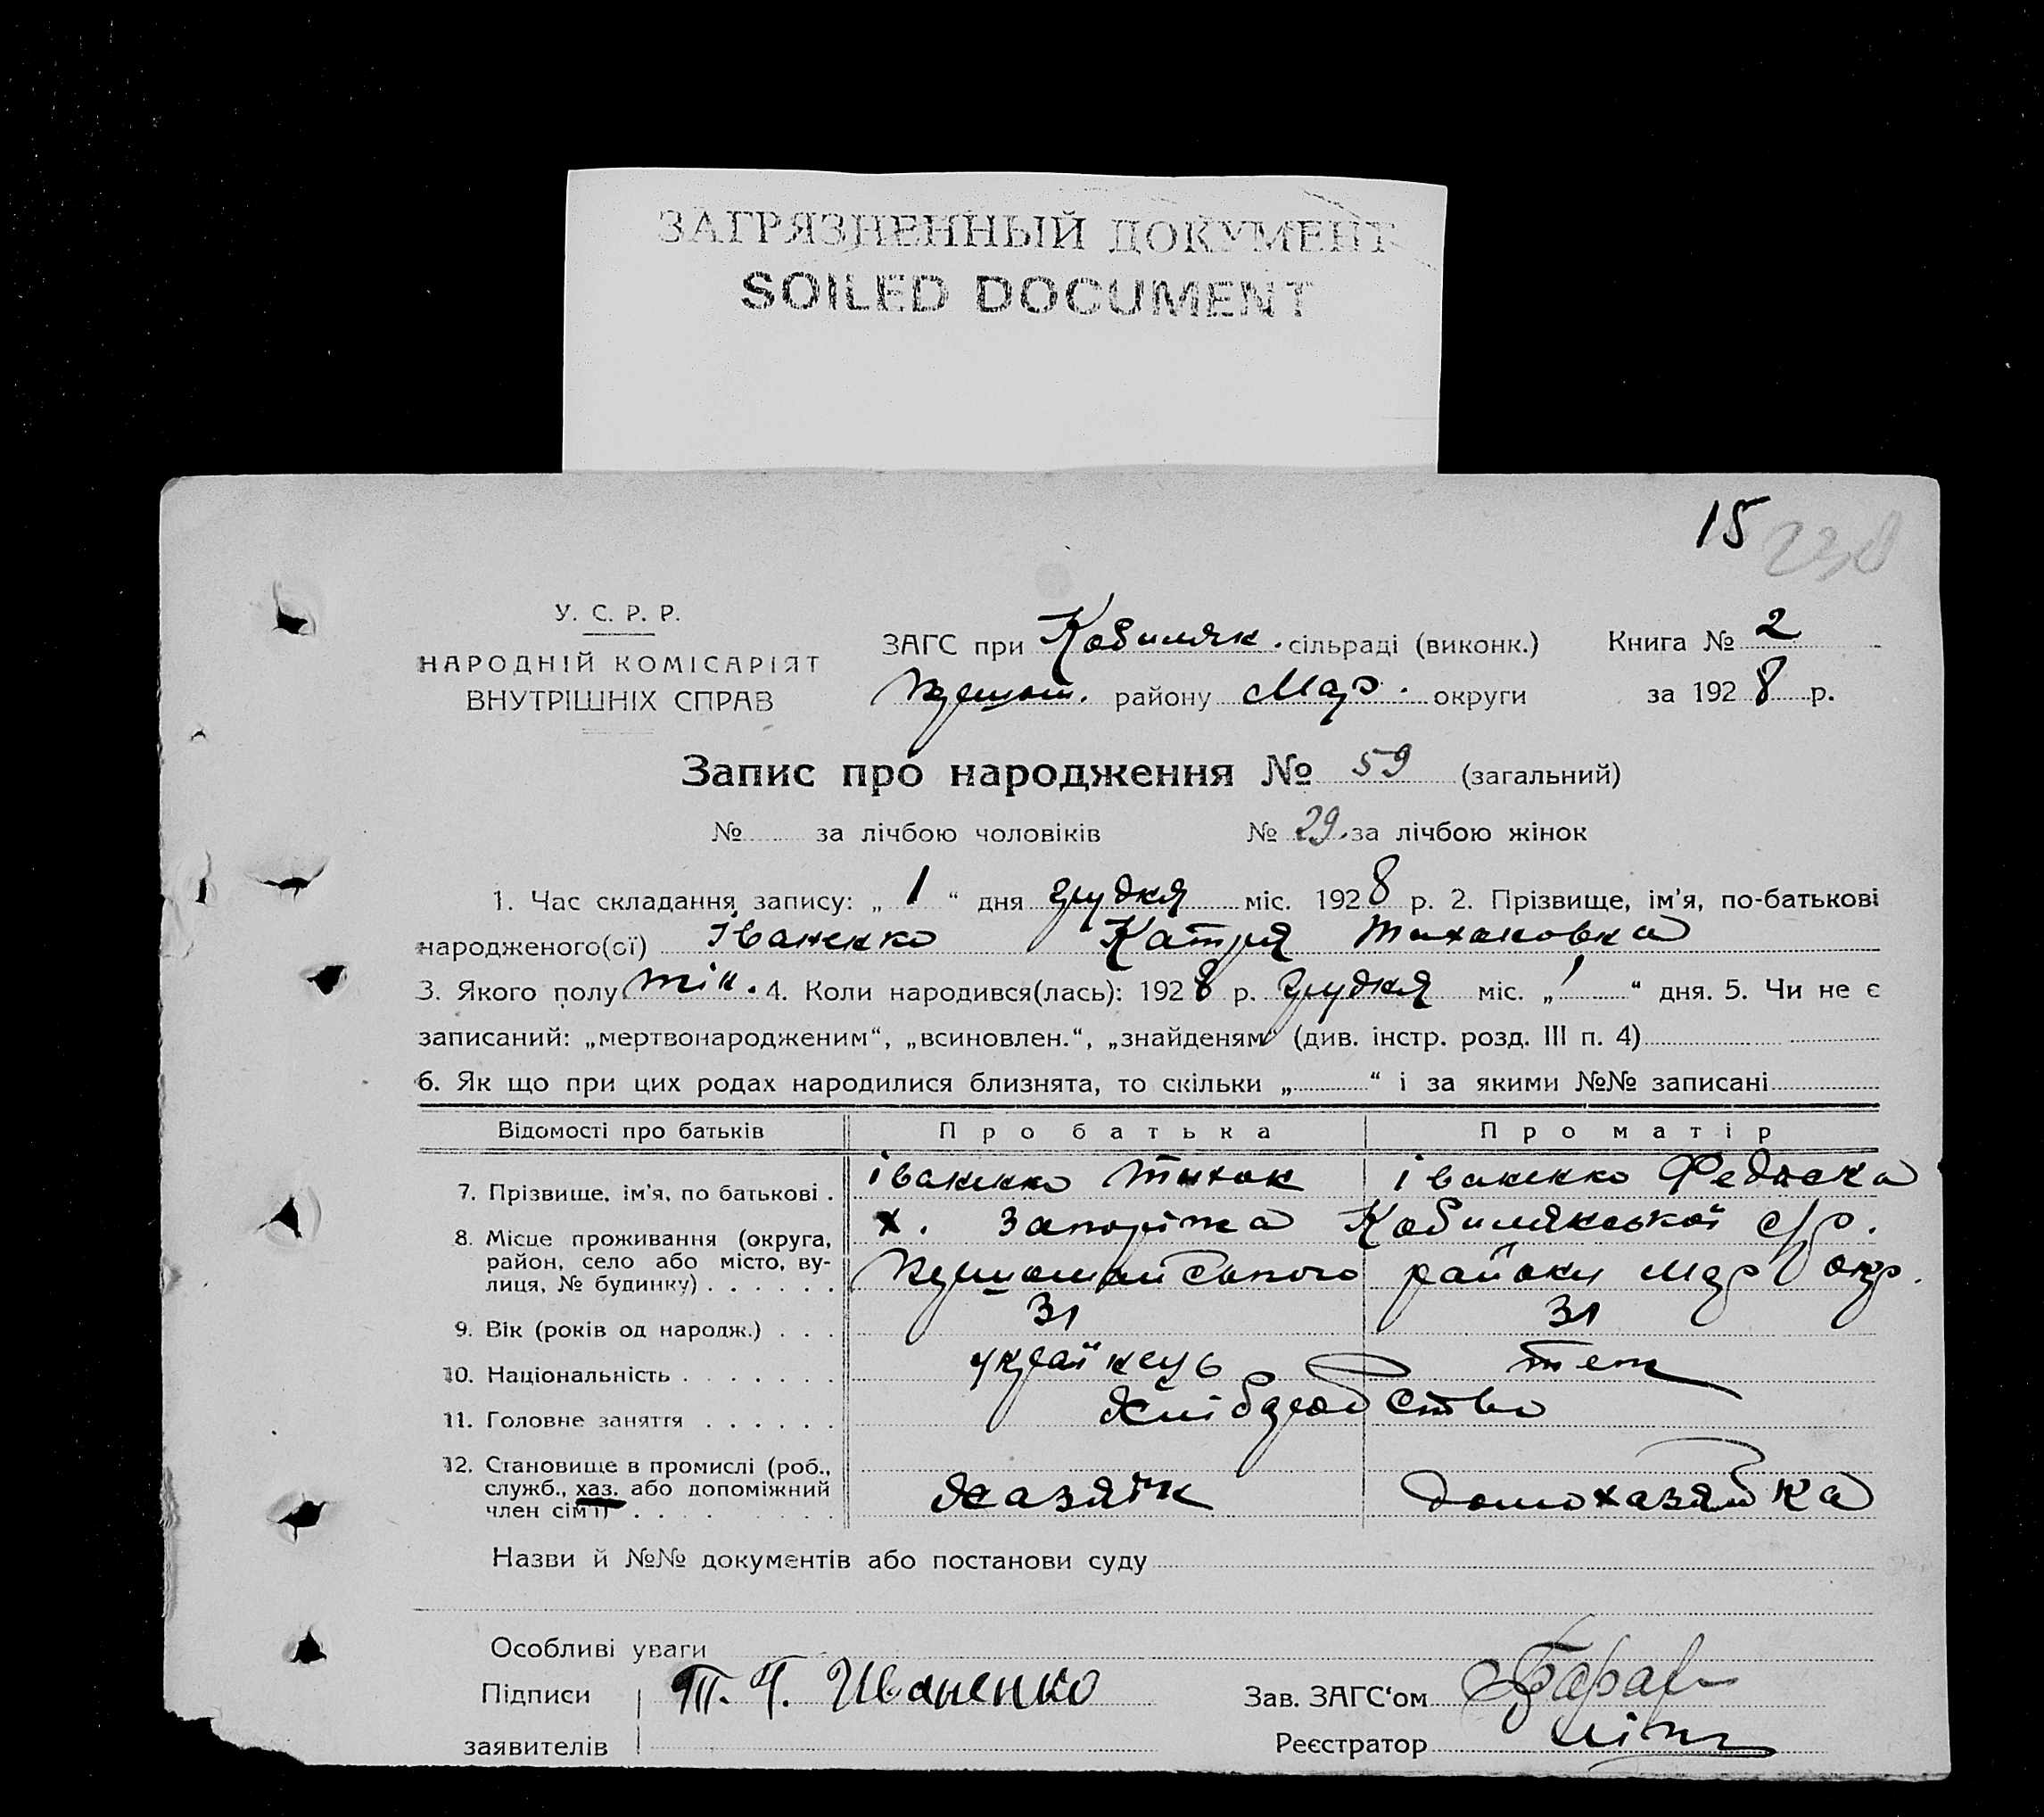 ЗАГРЯЗНЕННЫЙ ДОКУМЕНТ
SOILED DOCUMENT
15
У. С. Р. Р.
НАРОДНІЙ КОМІСАРІЯТ
ВНУТРІШНІХ СПРАВ
ЗАГС при Кобиляк. сільраді (виконк.) Книга № 2
району Мар. округи за 1928 р.
Запис про народження № 59 (загальний)
№ за лічбою чоловіків № 29. за лічбою жінок
1. Час складання запису: „ 1 “ дня грудня міс. 1928 р. 2. Прізвище, ім'я, по-батькові
народженого(ої) Іваненко Катря Тихоновна
3. Якого полу жін. 4. Коли народився(лась): 1928 р. грудня міс. „ 1 “ дня. 5. Чи не є
записаний: „мертвонародженим“, „всиновлен.“, „знайденям“ (див. інстр. розд. III п. 4)
6. Як що при цих родах народилися близнята, то скільки „ “ і за якими №№ записані
Відомості про батьків Про батька Про матір
7. Прізвище, ім'я, по батькові . Іваненко Тихон Іваненко Федоска
8. Місце проживання (округа, х. Запоріжа Кобиляцької с/р.
район, село або місто, ву-
лиця, № будинку) . . . . . . району Мар окр.
9. Вік (років од народж.) . . . 31 31
10. Національність . . . . . . . українець теж
11. Головне заняття . . . . . . Хліборобство
12. Становище в промислі (роб.,
служб., хаз. або допоміжний Хазяїн домохазяйка
член сім'ї) . . . . . . . . .
Назви й №№ документів або постанови суду
Особливі уваги
Підписи Т. Г. Иваненко Зав. ЗАГС'ом
заявителів Реєстратор